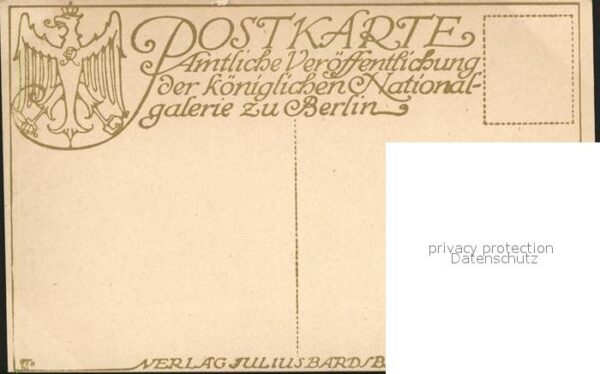 POSTKARTE
Amtliche Veröffentlichung
der königlichen National-
galerie zu Berlin
privacy protection
Datenschutz
VERLAG JULIUS BARDS B